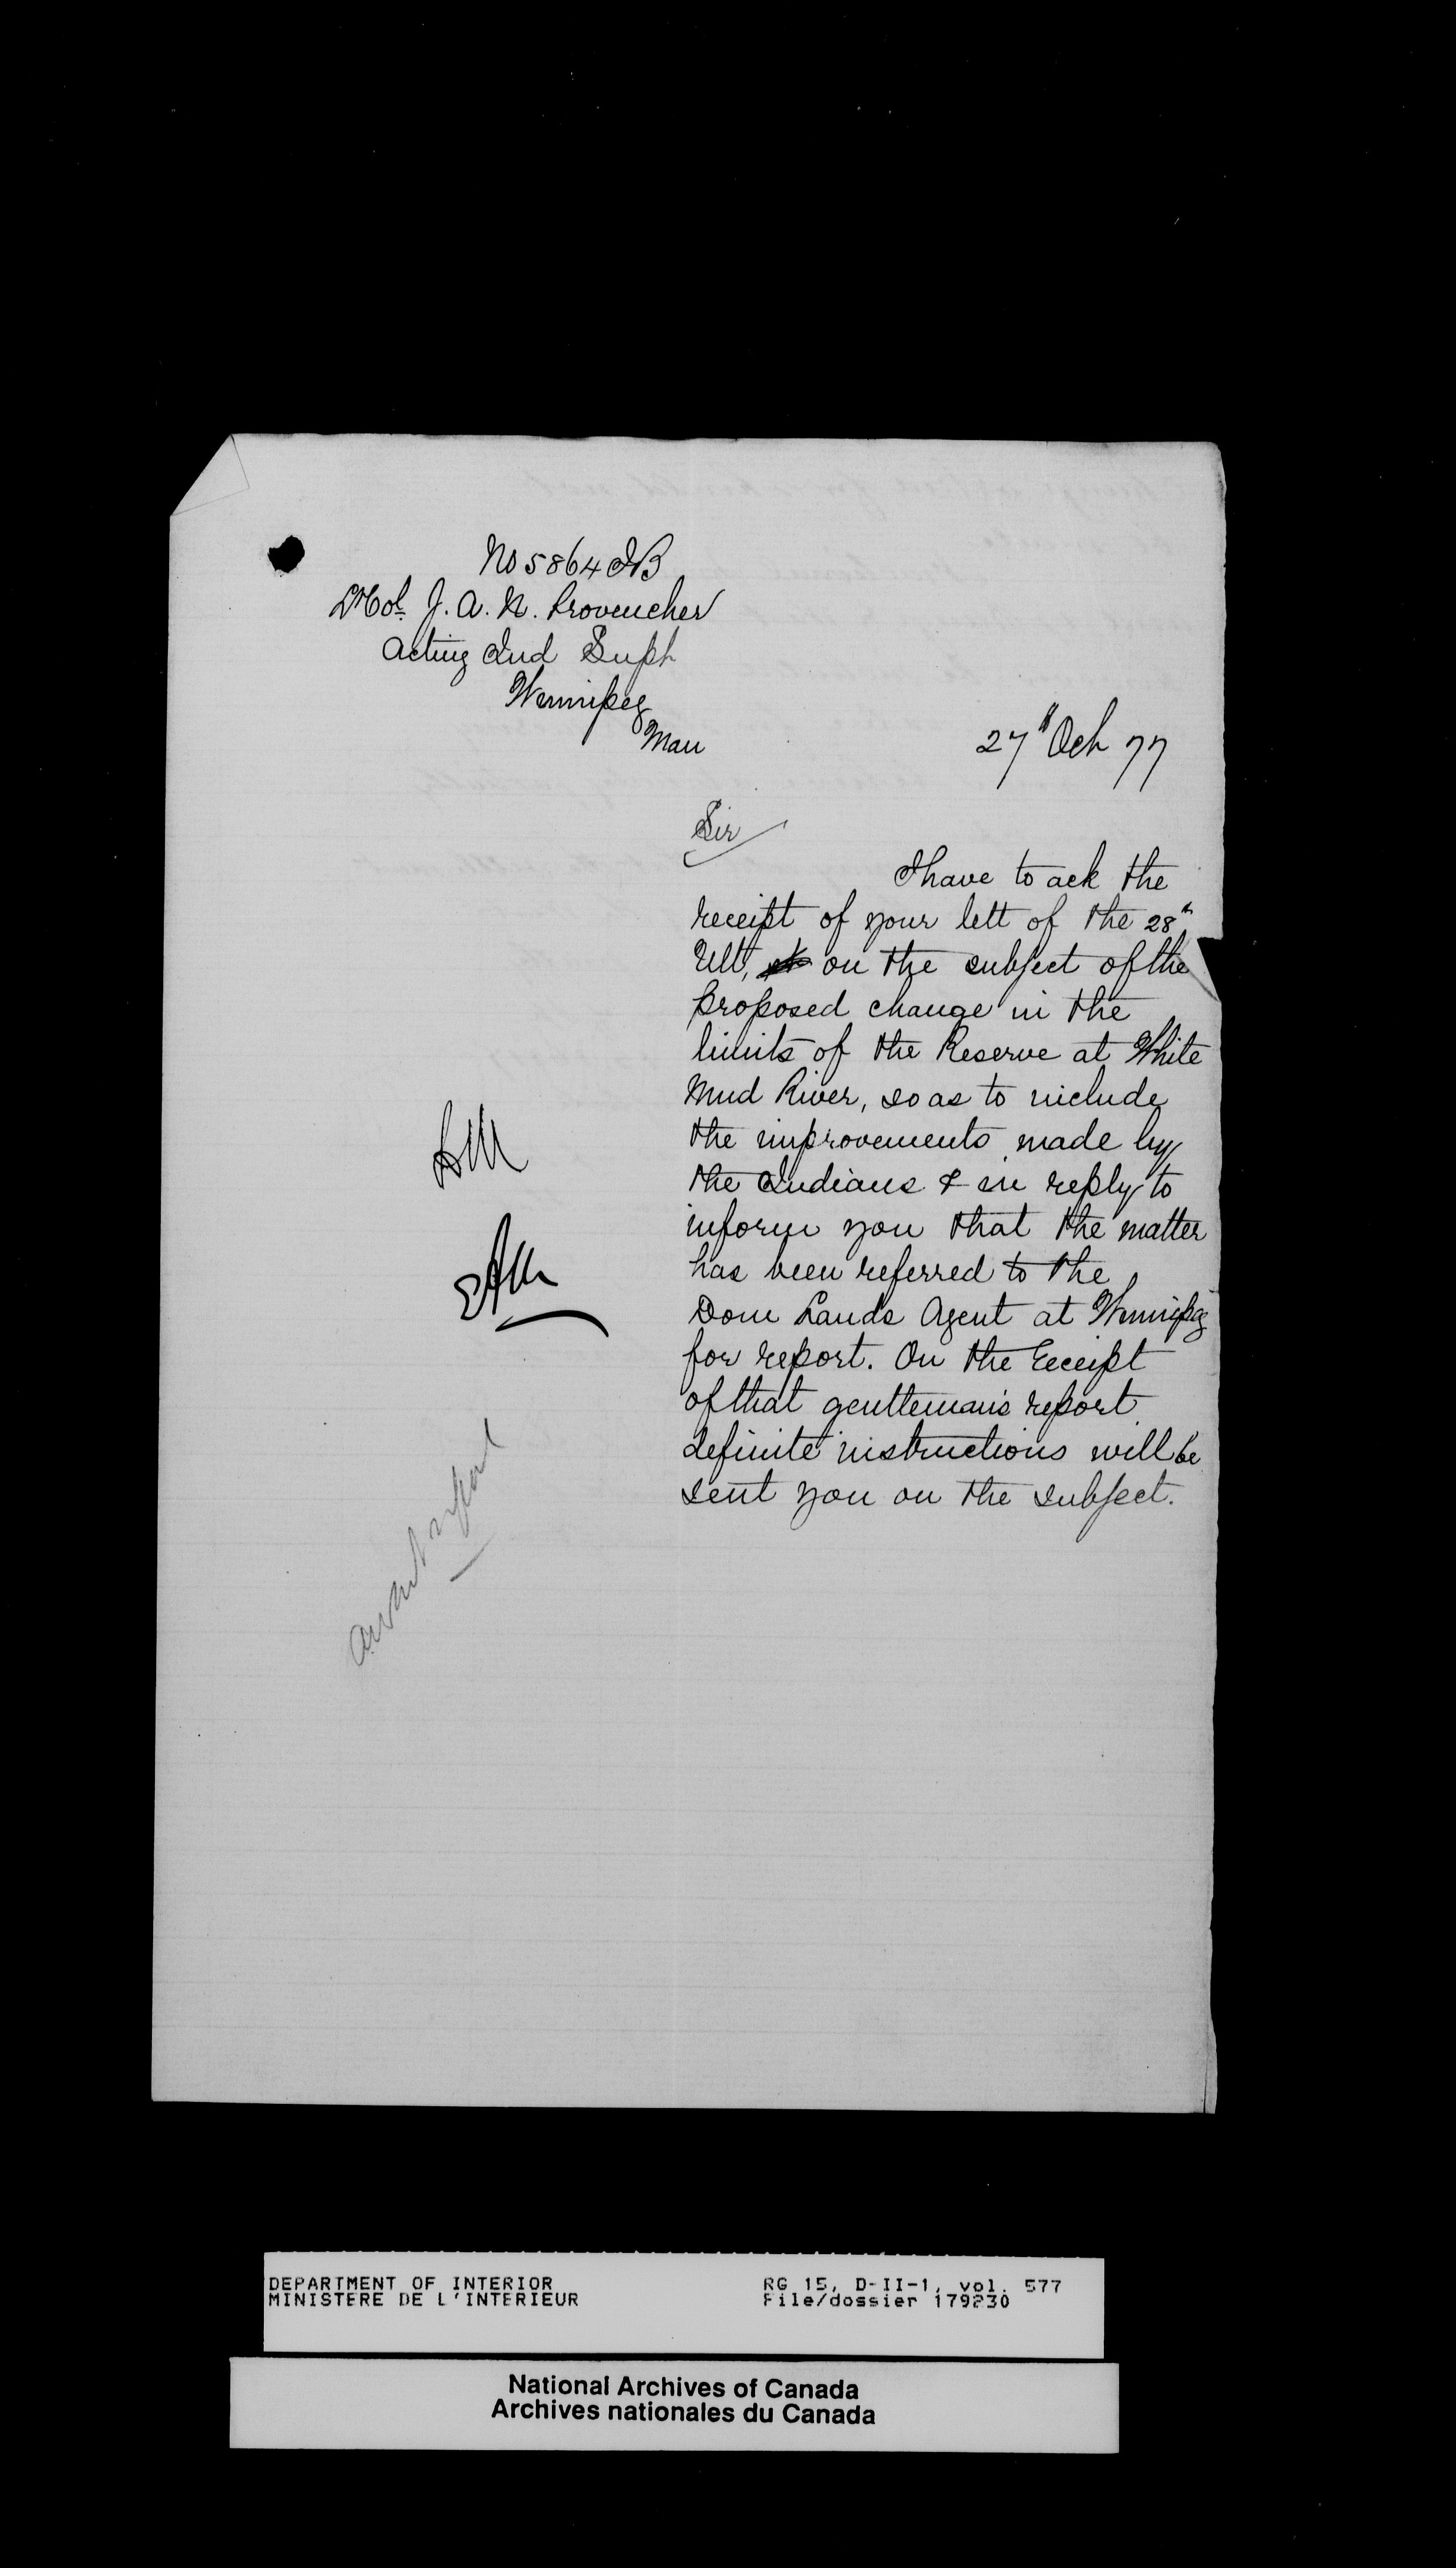 No 5864 IB
Lt Col. J. A. N. Provencher
Acting Ind Supt
Winnipeg
Man
27th Oct 77
Sir
I have to ack the
receipt of your lett of the 28th
Ult, on the subject of the
proposed change in the
limits of the Reserve at White
Mud River, so as to include
the improvements made by
the Indians & in reply to
inform you that the matter
has been referred to the
Dom Lands Agent at Winnipeg
for report. On the receipt
of that gentleman's report
definite instructions will be
sent you on the subject.
await report
DEPARTMENT OF INTERIOR
MINISTERE DE L'INTERIEUR
RG 15, D-II-1, vol. 577
File/dossier 179230
National Archives of Canada
Archives nationales du Canada